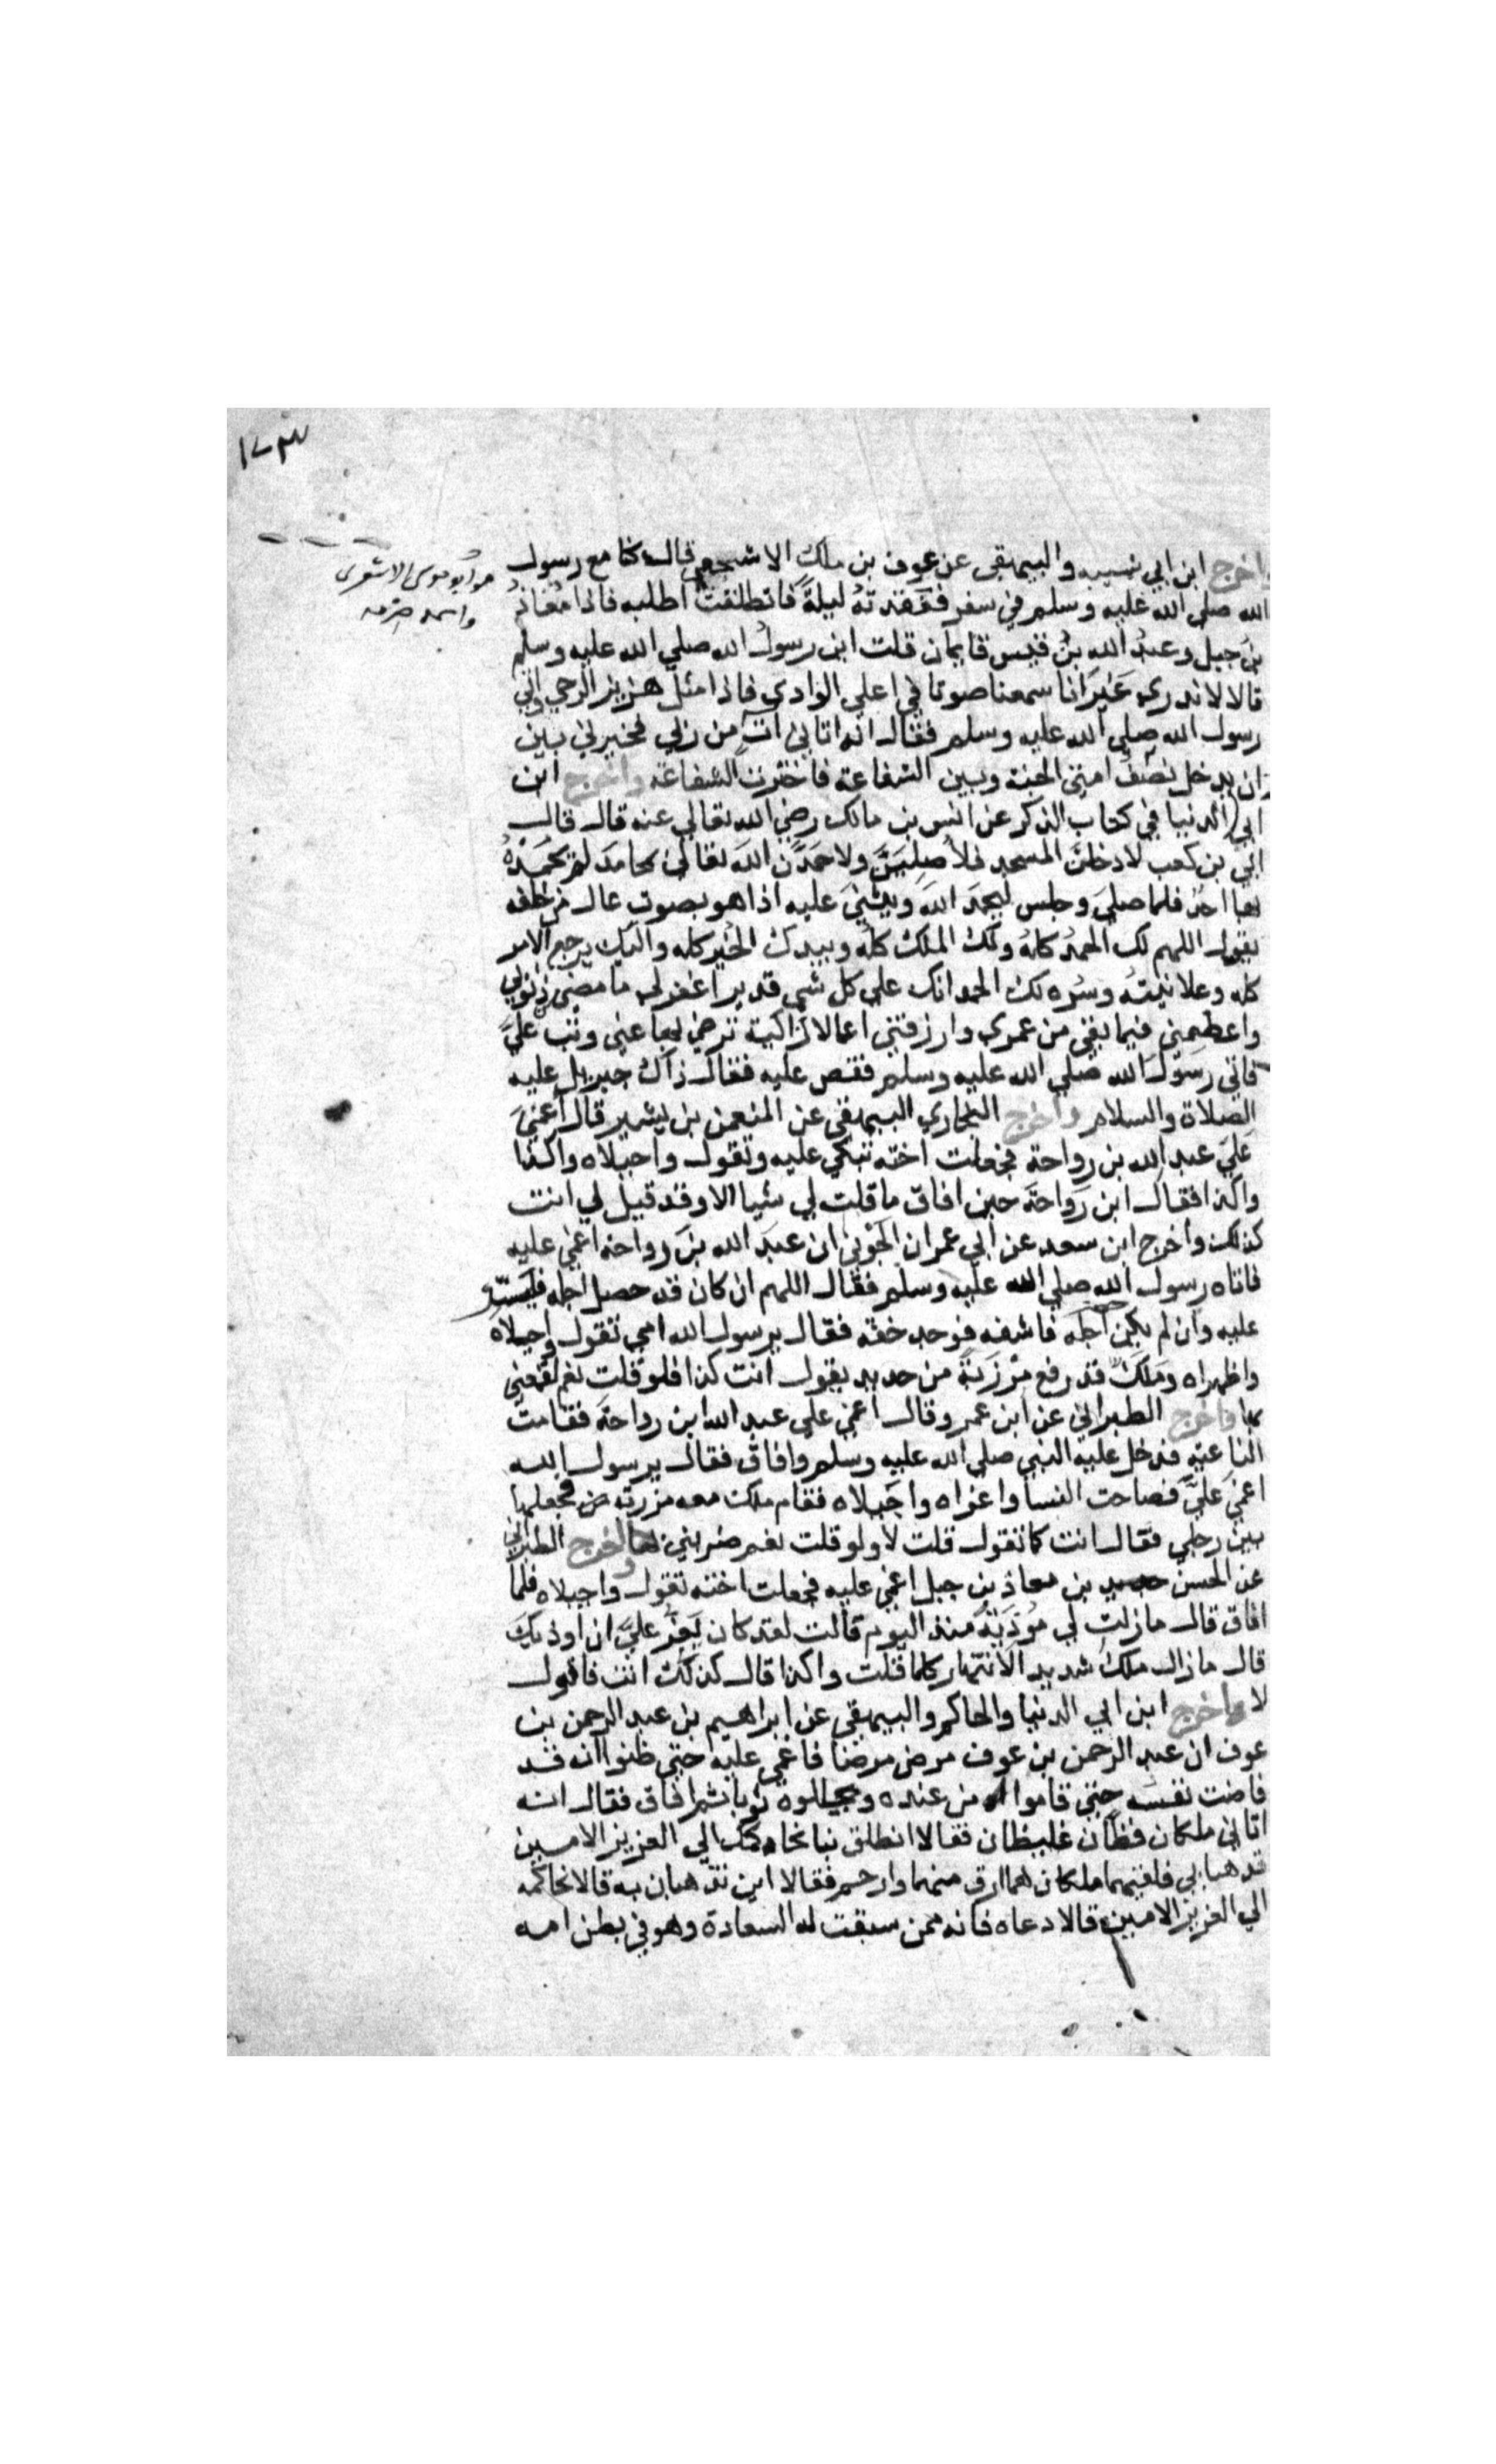 ١٧٣
هو ابو موسى الاشعرى
واسمه
واخرج ابن ابي شيبه والبيهقى عن عوف بن ملك الاشجعي قال كنا مع رسول
الله صلي الله عليه وسلم في سفر ففقدته ليلة فانطلقت اطلبه فاذا معاذ
بن جبل وعبد الله بن قيس قايمان قلت اين رسول الله صلي الله عليه وسلم
قالا لا ندري غير انا سمعنا صوتا في اعلي الوادي فاذا مثل هزيز الرحي واتي
رسول الله صلي الله عليه وسلم فقال انه اتاني ات من ربي فخيرني بين
ان يدخل نصف امتي الجنة وبين الشفاعة فاخترت الشفاعة واخرج ابن
ابي الدنيا في كتاب الذكر عن انس بن مالك رضي الله تعالي عنه قال قال
ابي بن كعب لادخلن المسجد فلاصلين ولاحمدن الله تعالي بمحامد لم يحمده
بها احد فلما صلي وجلس ليحمد الله ويثني عليه اذا هو بصوت عال من خلفه
يقول اللهم لك الحمد كله ولك الملك كله وبيدك الخير كله واليك يرجع الامر
كله وعلانيته وسره لك الحمد انك علي كل شي قدير اغفر لي ما مضي من ذنوبي
واعصمني فيما بقي من عمري وارزقني اعمالا زاكية ترضي بها عني وتب علي
فاتي رسول الله صلي الله عليه وسلم فقص عليه فقال ذاك جبريل عليه
الصلاة والسلام واخرج البخاري البيهقي عن النعمن بن بشير قال اغمي
علي عبد الله بن رواحة فجعلت اخته تبكي عليه وتقول واجبلاه واكذا
واكذا فقال ابن رواحة حين افاق ما قلت لي شيا الا وقد قيل لي انت
كذلك واخرج ابن سعد عن ابي عمران الجوني ان عبد الله بن رواحة اغمي عليه
فاتاه رسول الله صلي الله عليه وسلم فقال اللهم ان كان قد حصل اجله فيسر
عليه وان لم يكن اجله فاشفه فوجد خفة فقال يرسول الله امي تقول واجبلاه
واظهراه وملك قد رفع مرزبة من حديد يقول انت كذا فلو قلت نعم لقمعني
بها واخرج الطبراني عن ابن عمرو قال اغمي علي عبد الله ابن رواحة فقامت
الناعية فدخل عليه النبي صلي الله عليه وسلم وافاق فقال يرسول الله
اغمي علي فصاحت النسا واعزاه واجبلاه فقام ملك معه مزربة من فجعلها
بين رجلي فقال انت كما تقول قلت لا ولو قلت نعم ضربني بها واخرج الطبراني
عن الحسن بن معاذ بن جبل اغمي عليه فجعلت اخته تقول واجبلاه فلما
افاق قال ما زلت لي موذية منذ اليوم قالت لقد كان يعز علي ان اوذيك
قال ما زال ملك شديد الانتهار كلما قلت واكذا قال كذلك انت فاقول
لا واخرج ابن ابي الدنيا والحاكم والبيهقي عن ابراهيم بن عبد الرحمن بن
عوف ان عبد الرحمن بن عوف مرض مرضا فاغمي عليه حتي ظنوا انه قد
فاضت نفسه حتي قاموا من عنده وجللوه ثوبا ثم افاق فقال انه
اتاني ملكان فظان غليظان فقالا انطلق بنا نحاكمك الي العزيز الامين
فذهبا بي فلقيهما ملكان هما ارق منهما وارحم فقالا اين تذهبان به قالا نحاكمه
الي العزيز الامين قالا دعاه فانه ممن سبقت له السعادة وهو في بطن امه